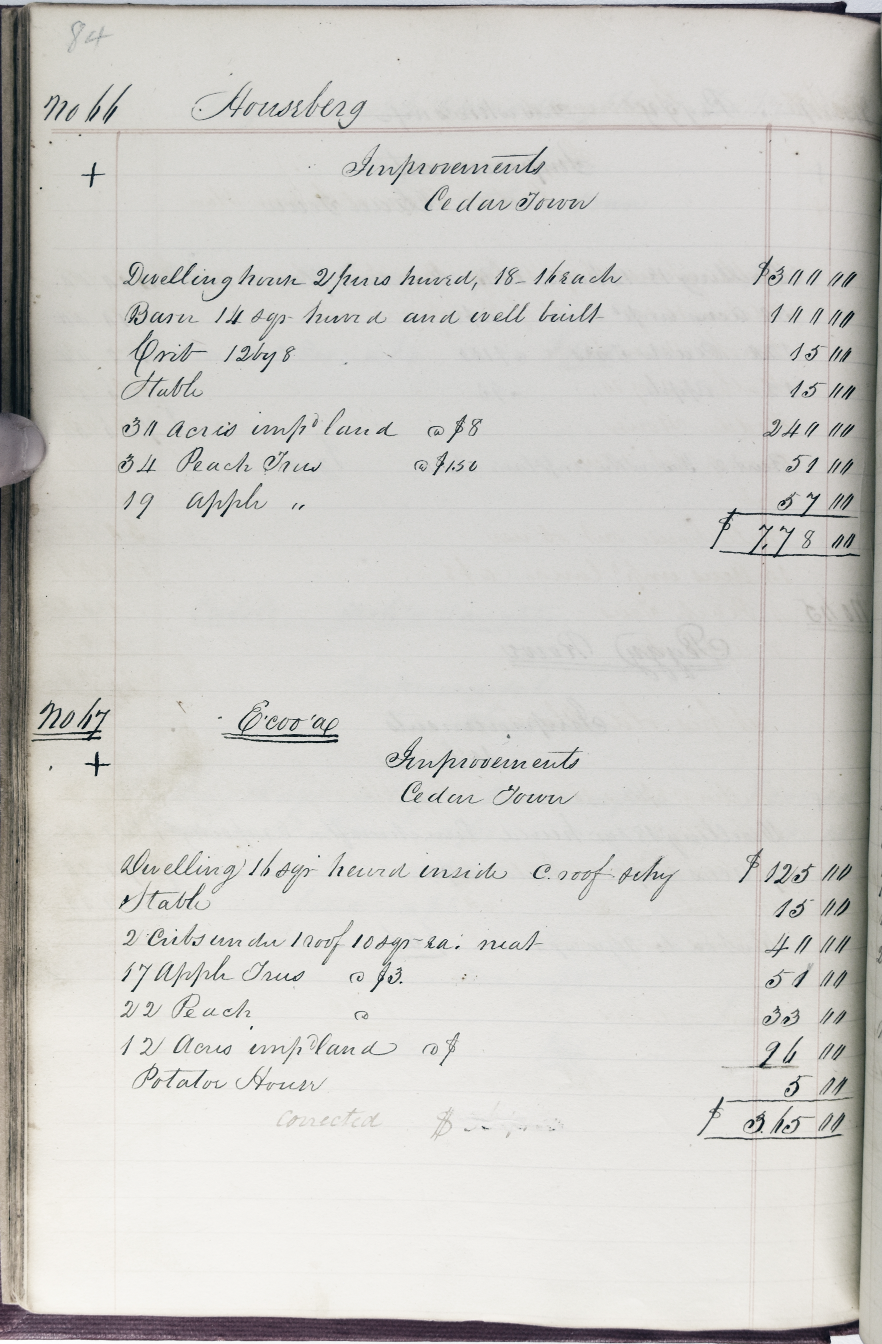 84
No 66 Houseberg
+ Improvements
Cedar Town
Dwelling house 2 pens hewed, 18-16 each $300 00
Barn 14 sqr hewed and well built 100 00
Crib 12 by 8 15 00
Stable 15 00
30 Acres impd land @ $8 240 00
34 Peach Trees @ $1.50 51 00
19 Apple " 57 00
$ 778 00
No 67 Ecoo'ae
+ Improvements
Cedar Town
Dwelling 16 sqr hewed inside C. roof $ 125 00
Stable 15 00
2 Cribs under 1 roof 10 sqr ea. neat 40 00
17 Apple Trees @ $3. 51 00
22 Peach @ 33 00
12 Acres impd land @ $ 96 00
Potatoe House 5 00
corrected $ $ 365 00